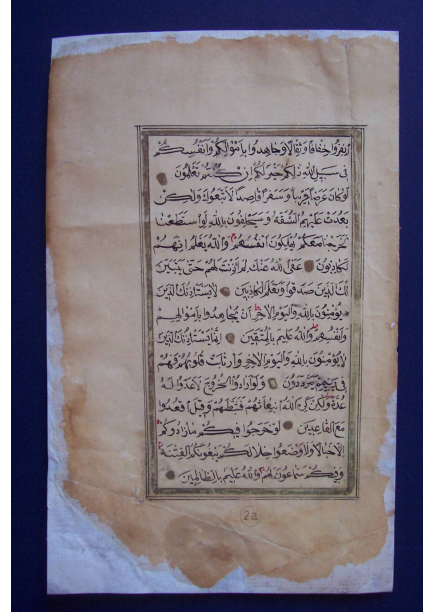 انفروا خفافا وثقالا وجاهدوا باموالكم وانفسكم
فى سبيل الله ذلكم خير لكم ان كنتم تعلمون
لو كان عرضا قريبا وسفرا قاصدا لاتبعوك ولكن
بعدت عليهم الشقة وسيحلفون بالله لو استطعنا
لخرجنا معكم يهلكون انفسهم والله يعلم انهم
لكاذبون عفى الله عنك لم اذنت لهم حتى يتبين
لك الذين صدقوا وتعلم الكاذبين لا يستاذنك الذين
يؤمنون بالله واليوم الاخر ان يجاهدوا باموالهم
وانفسهم والله عليم بالمتقين انما يستاذنك الذين
لا يؤمنون بالله واليوم الاخر وارتابت قلوبهم فهم
فى ريبهم يترددون ولو ارادوا الخروج لاعدوا له
عدة ولكن كره الله انبعاثهم فثبطهم وقيل اقعدوا
مع القاعدين لو خرجوا فيكم ما زادوكم
الا خبالا ولا وضعوا خلالكم يبغونكم الفتنة
وفيكم سماعون لهم والله عليم بالظالمين
2a